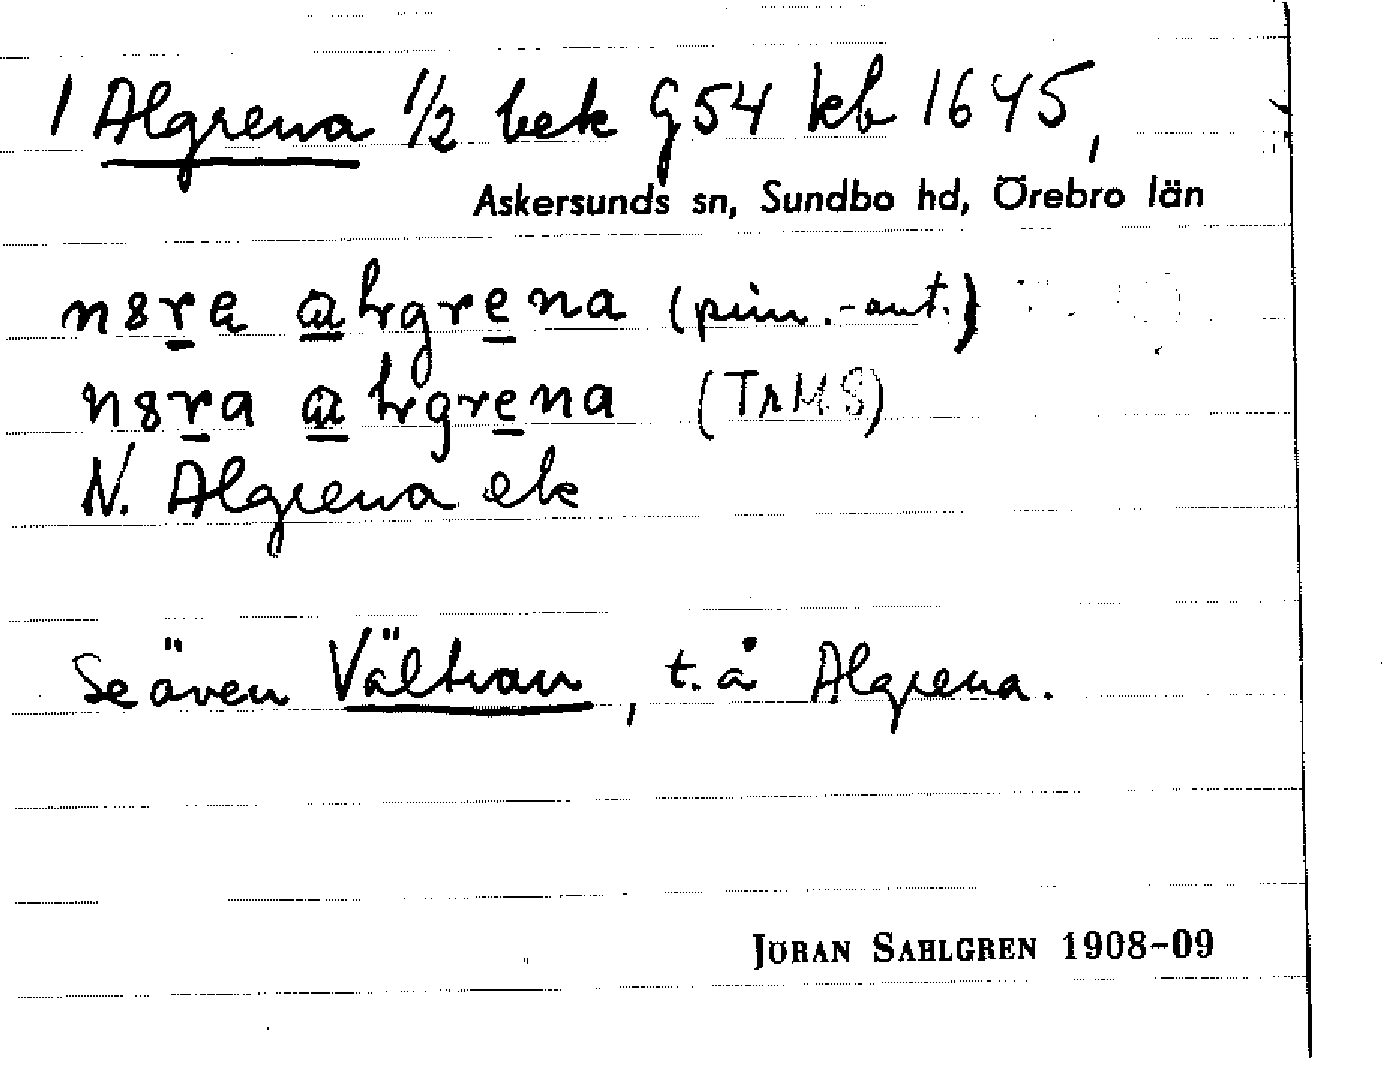 1 Algrena 1/2 bek G54 kb 1645,
Askersunds sn, Sundbo hd, Örebro län
n8ra alrgrena (prim.-ant.)
n8ra alrgrena (TRMS)
N. Algrena ek
Se även Vältran, t. å Algrena.
JÖRAN SAHLGREN 1908-09